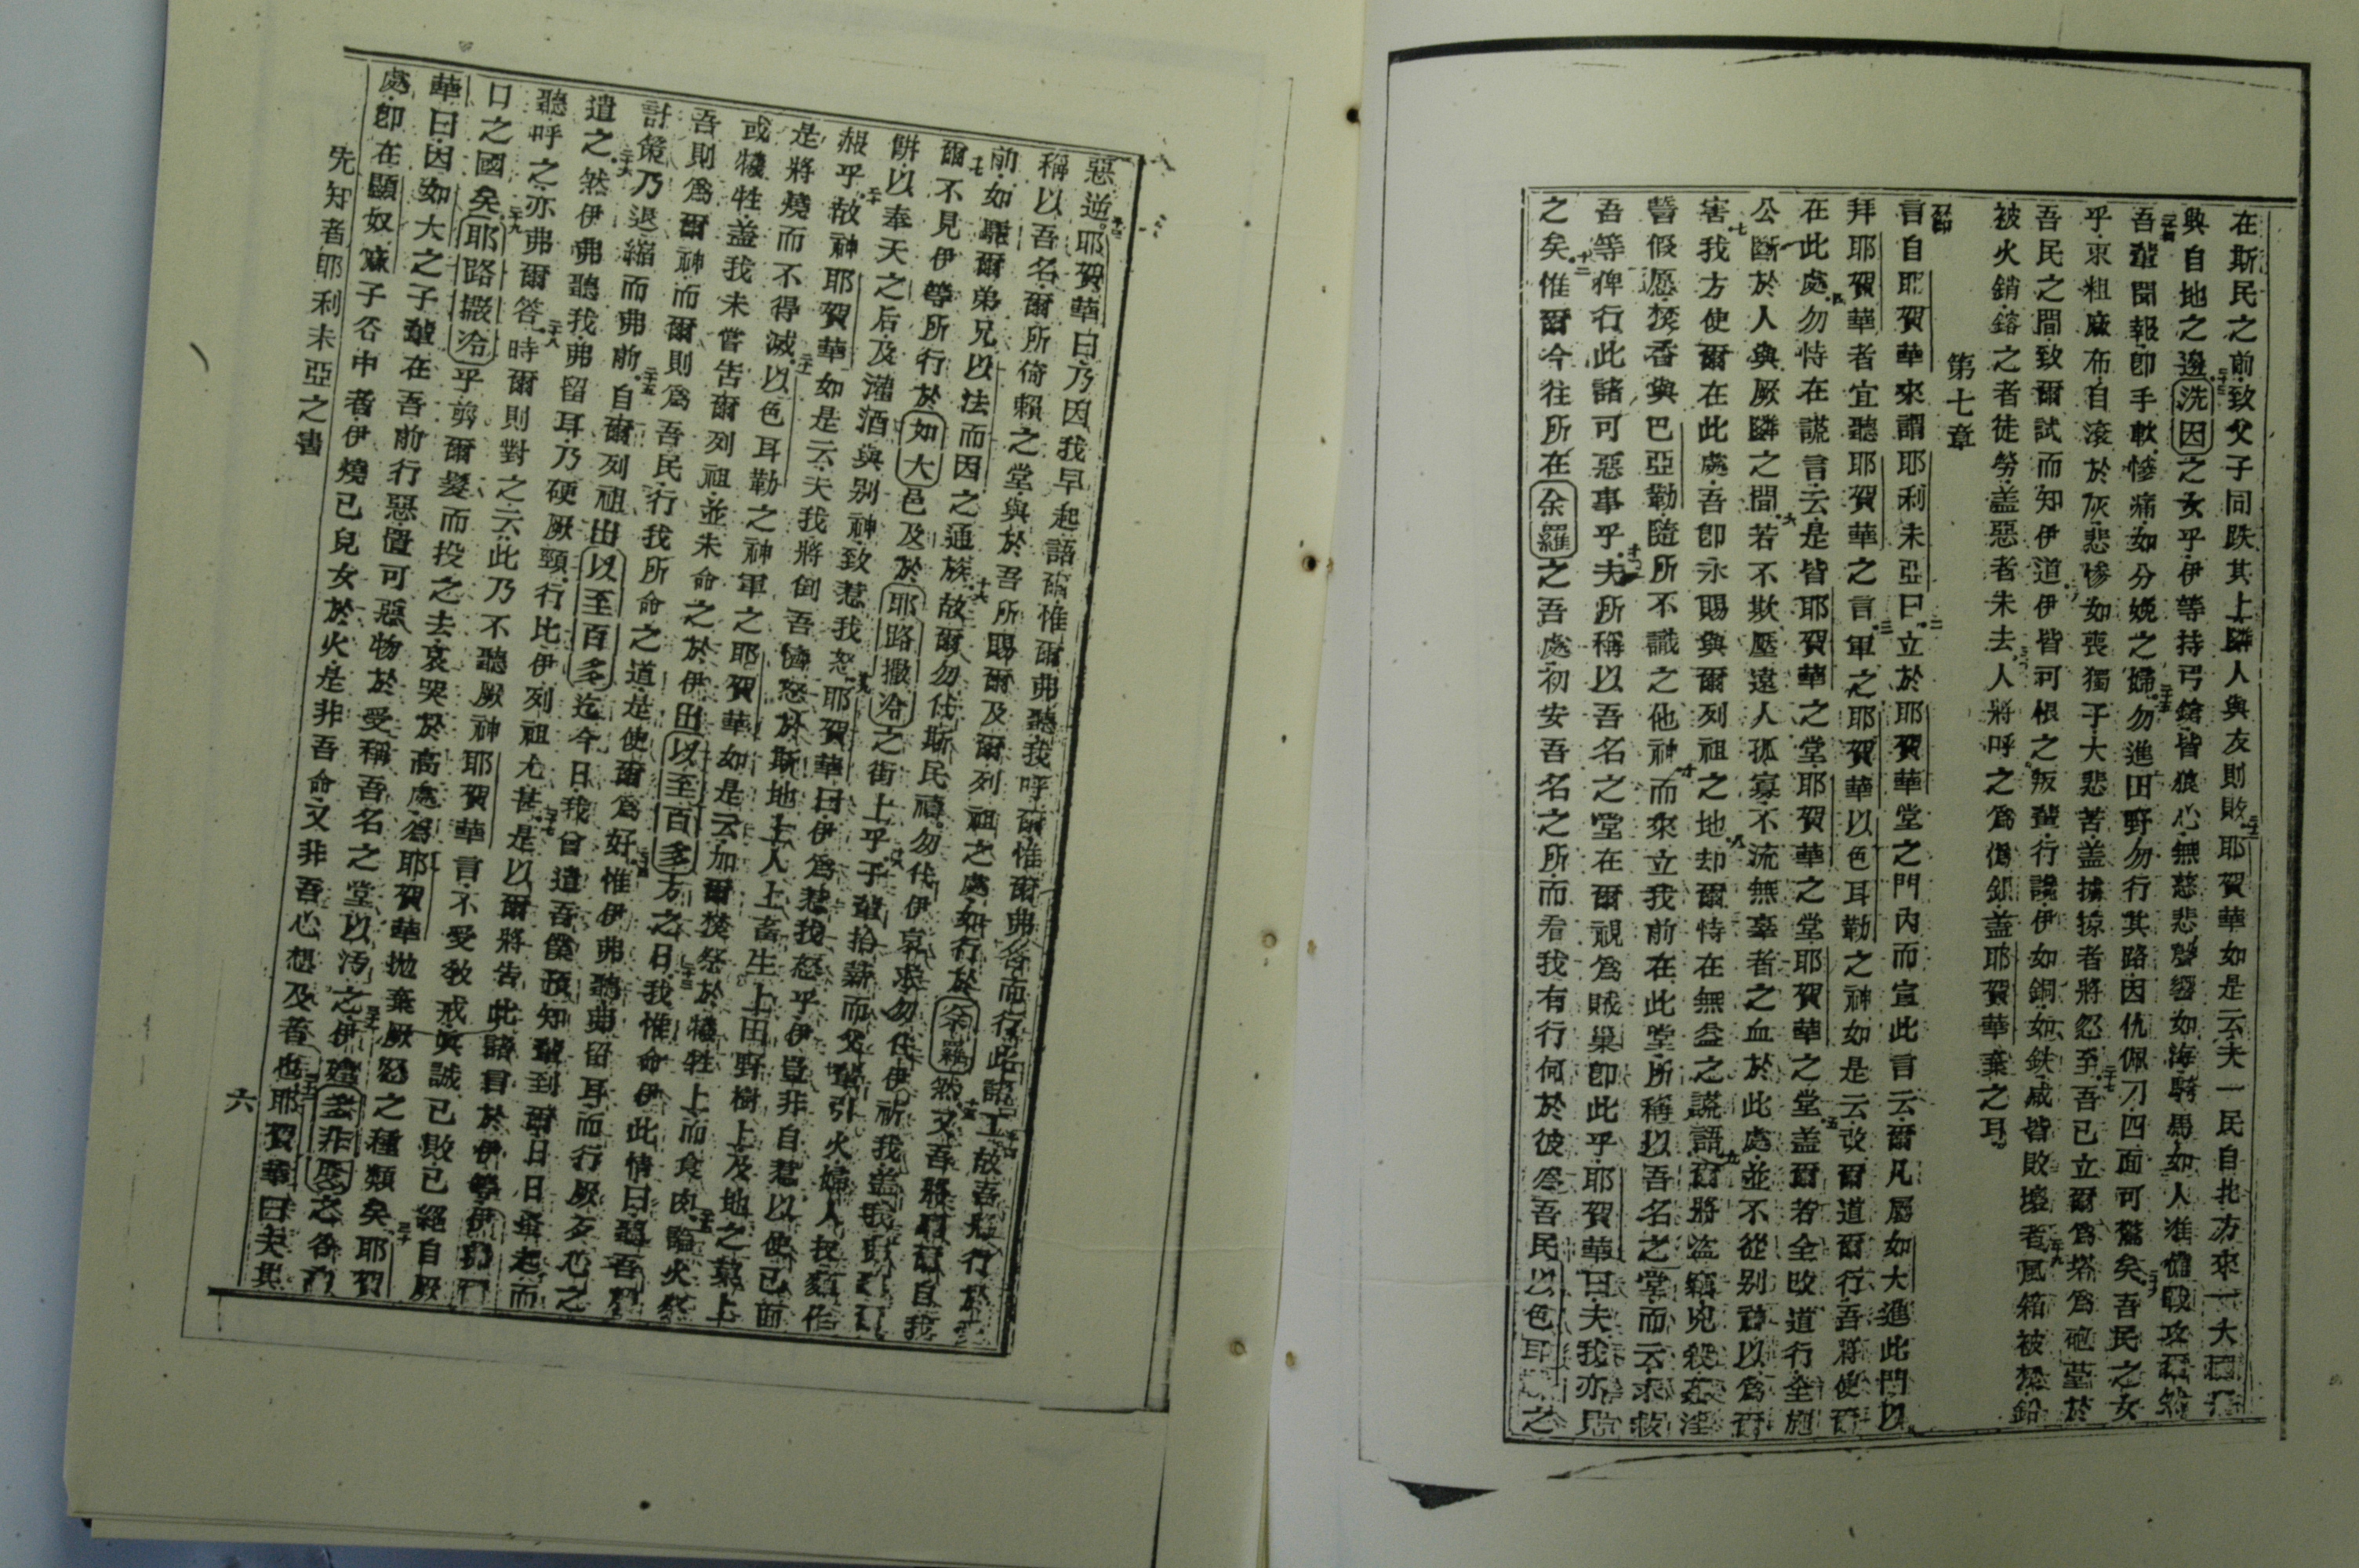 在斯民之前致父子同跌其上隣人與友則敗耶賀華如是云夫一民自北方來一大國
與自地之邊洗因之女乎伊等持弓鎗皆狼心無慈悲聲響如海騎馬如人准備戰攻
吾輩聞報卽手軟慘痛如分娩之婦勿進田野勿行其路因仇佩刀四面可驚矣吾民之女
乎束粗蔴布自滾於灰悲慘如喪獨子大悲苦蓋擄掠者將忽至吾已立爾爲塔爲砲臺於
吾民之間致爾試而知伊道伊皆可恨之叛輩行謊伊如銅如鉄咸皆敗壞者風箱被焚鉛
被火銷鎔之者徒勞蓋惡者未去人將呼之爲僞銀蓋耶賀華棄之耳
第七章
節
言自耶賀華來謂耶利未亞曰立於耶賀華堂之門內而宣此言云爾凡屬如大進此門以
拜耶賀華者宜聽耶賀華之言軍之耶賀華以色耳勒之神如是云改爾道爾行吾將使爾
在此處勿恃在謊言云是皆耶賀華之堂耶賀華之堂耶賀華之堂蓋爾若全改道行全施
公斷於人與厥隣之間若不欺壓遠人孤寡不流無辜者之血於此處並不從别神以爲
害我方使爾在此處吾卽永賜與爾列祖之地却爾恃在無益之謊語爾將盜竊兇殺姦淫
誓假愿焚香與巴亞勒隨所不識之他神而來立我前在此堂所稱以吾名之堂而云求救
吾等俾行此諸可惡事乎夫所稱以吾名之堂在爾視爲賊巢卽此乎耶賀華曰夫我亦見
之矣惟爾今往所在余羅之吾處初安吾名之所而看我有行何於彼爲吾民以色耳之
惡逆耶賀華曰乃因我早起語爾惟爾弗聽我呼爾惟爾弗答而行此諸工故吾將行於
稱以吾名爾所倚賴之堂與於吾所賜爾及爾列祖之處如行於余羅然又吾將自我
前如驅爾弟兄以法而因之通族故爾勿代斯民禱勿代伊哀求勿代伊祈我蓋我
爾不見伊等所行於如大邑及於耶路撒冷之街上乎子輩拾薪而父輩引火婦人
餅以奉天之后及灌酒與别神致惹我怒耶賀華曰伊爲惹我怒乎伊豈非自惹以使己面
赧乎故神耶賀華如是云夫我將倒吾憤怒於斯地上人上畜生上田野樹上及地之菓上
是將燒而不得滅以色耳勒之神軍之耶賀華如是云加爾焚祭於犧牲上而食肉
或犧牲蓋我未嘗告爾列祖並未命之於伊出以至百多方之日我惟命伊此情曰聽吾
吾則爲爾神而爾則爲吾民行我所命之道是使爾爲好惟伊弗聽弗留耳而行厥歹心之
計策乃退縮而弗前自爾列祖出以至百多迄今日我曾遣吾僕預知輩到爾日日早起而
遺之然伊弗聽我弗留耳乃硬厥頸行比伊列祖尤甚是以爾將告此諸言於伊等
聽呼之亦弗爾答時爾則對之云此乃不聽厥神耶賀華言不受敎戒眞誠已敗已絕自厥
口之國矣耶路撒冷乎剪爾髮而投之去哀哭於高處爲耶賀華拋棄厥怒之種類矣耶賀
華曰因如大之子輩在吾前行惡置可惡物於受稱吾名之堂以汚之伊建
處卽在顯奴麻子谷中者伊燒己兒女於火是非吾命又非吾心想及者也耶賀華曰夫
先知者耶利未亞之書
六